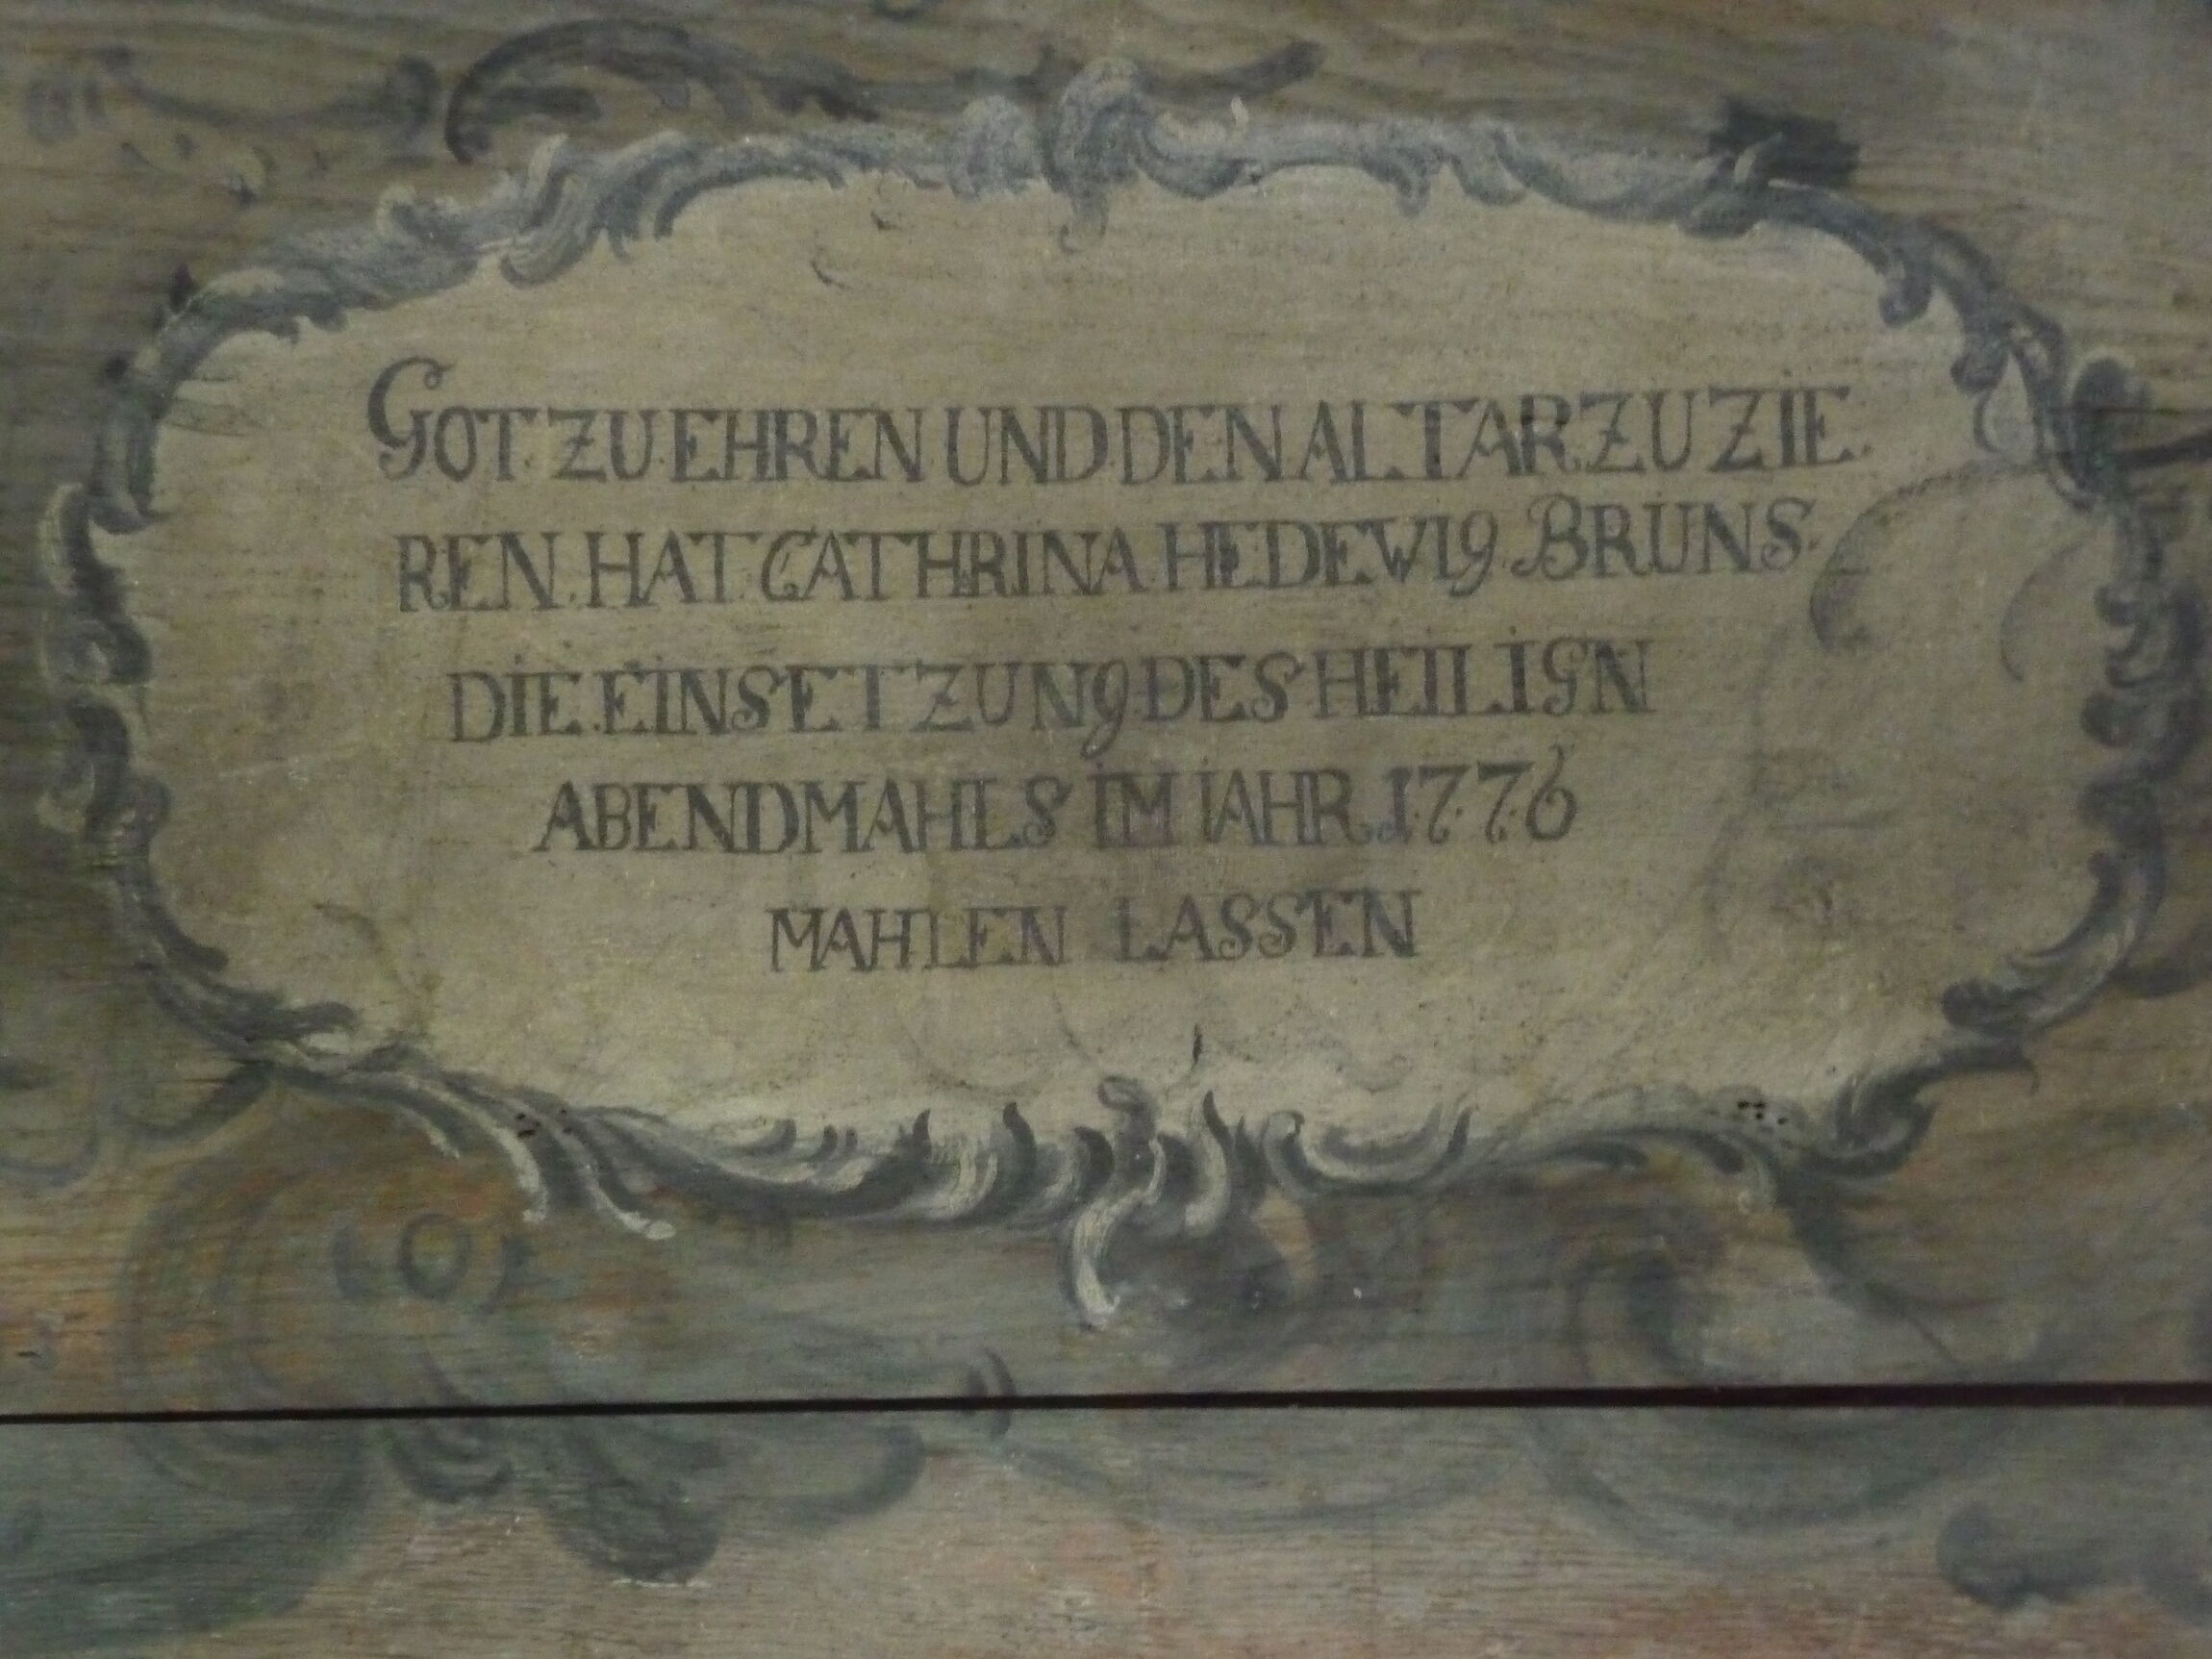 GOT ZU EHREN UND DEN ALTAR ZU ZIE
REN HAT CATHRINA HEDEWIG BRUNS
DIE EINSETZUNG DES HEILIGN
ABENDMAHLS IM IAHR 1776
MAHLEN LASSEN